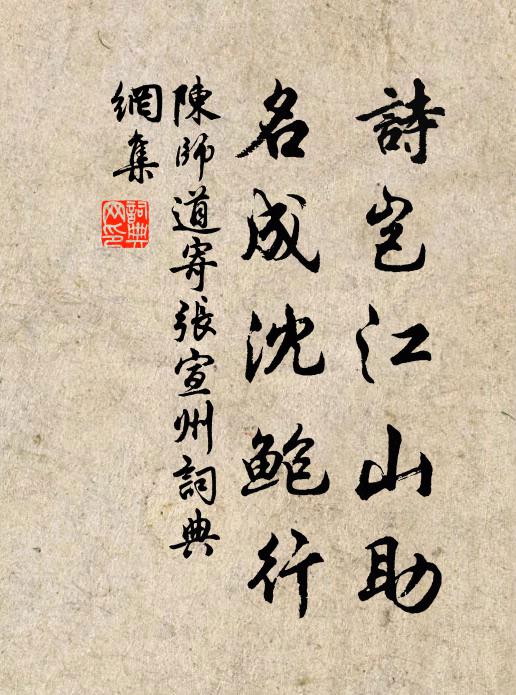 詩豈江山助
名成沈鮑行
陳師道寄張宣州詞典
網集
詞典
网印